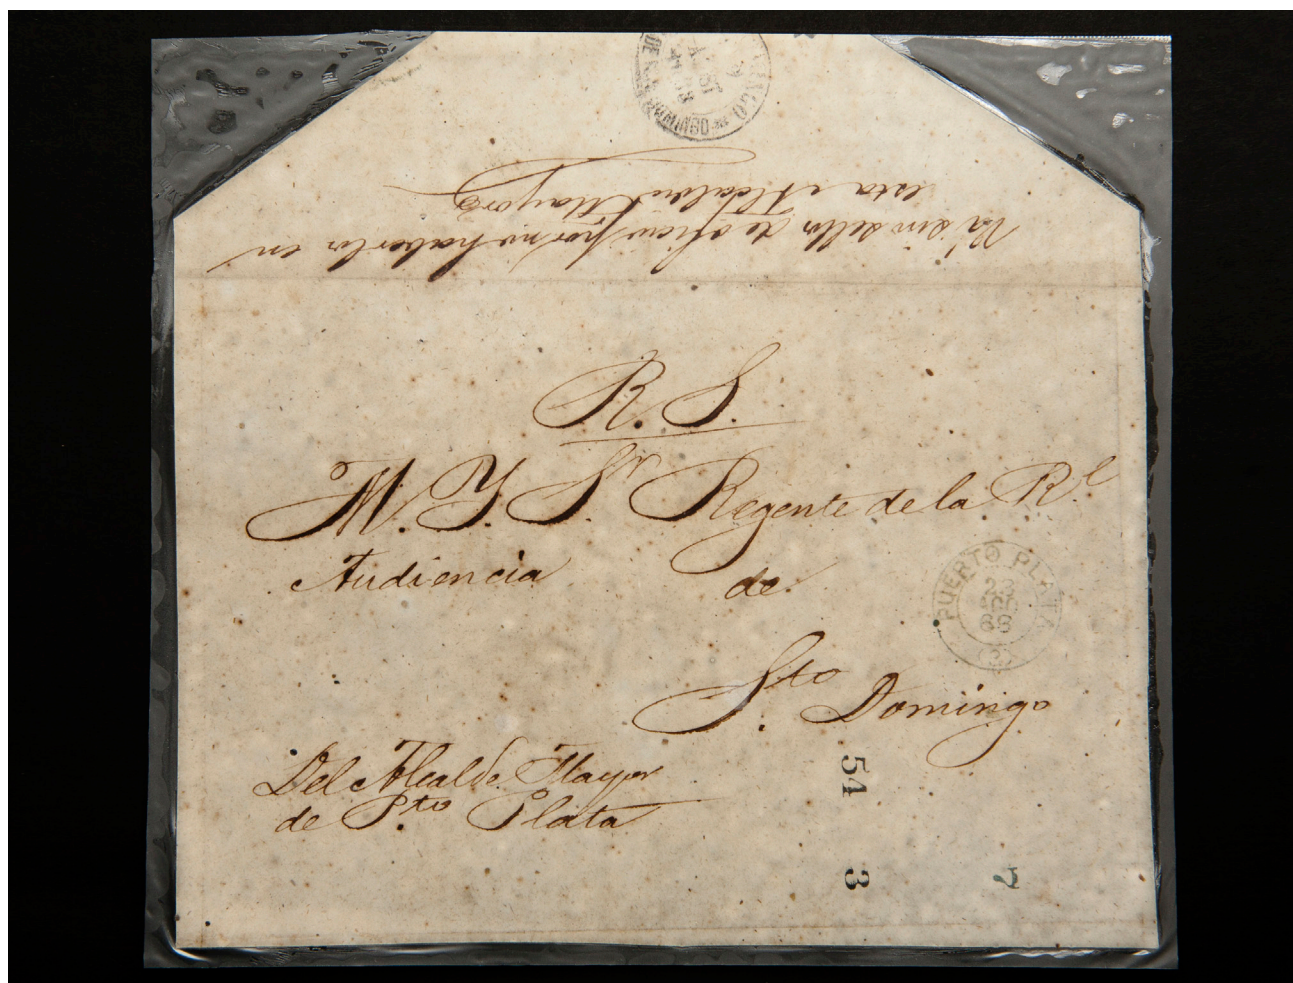 Va sin sello de oficio por no haberlo en
esta Alcaldia Mayor
R. S.
M. Y. Sr. Regente de la Rl.
Audiencia de
Sto. Domingo
PUERTO PLATA
23
(3)
Del Alcalde Mayor
de Pto. Plata
54
3
7